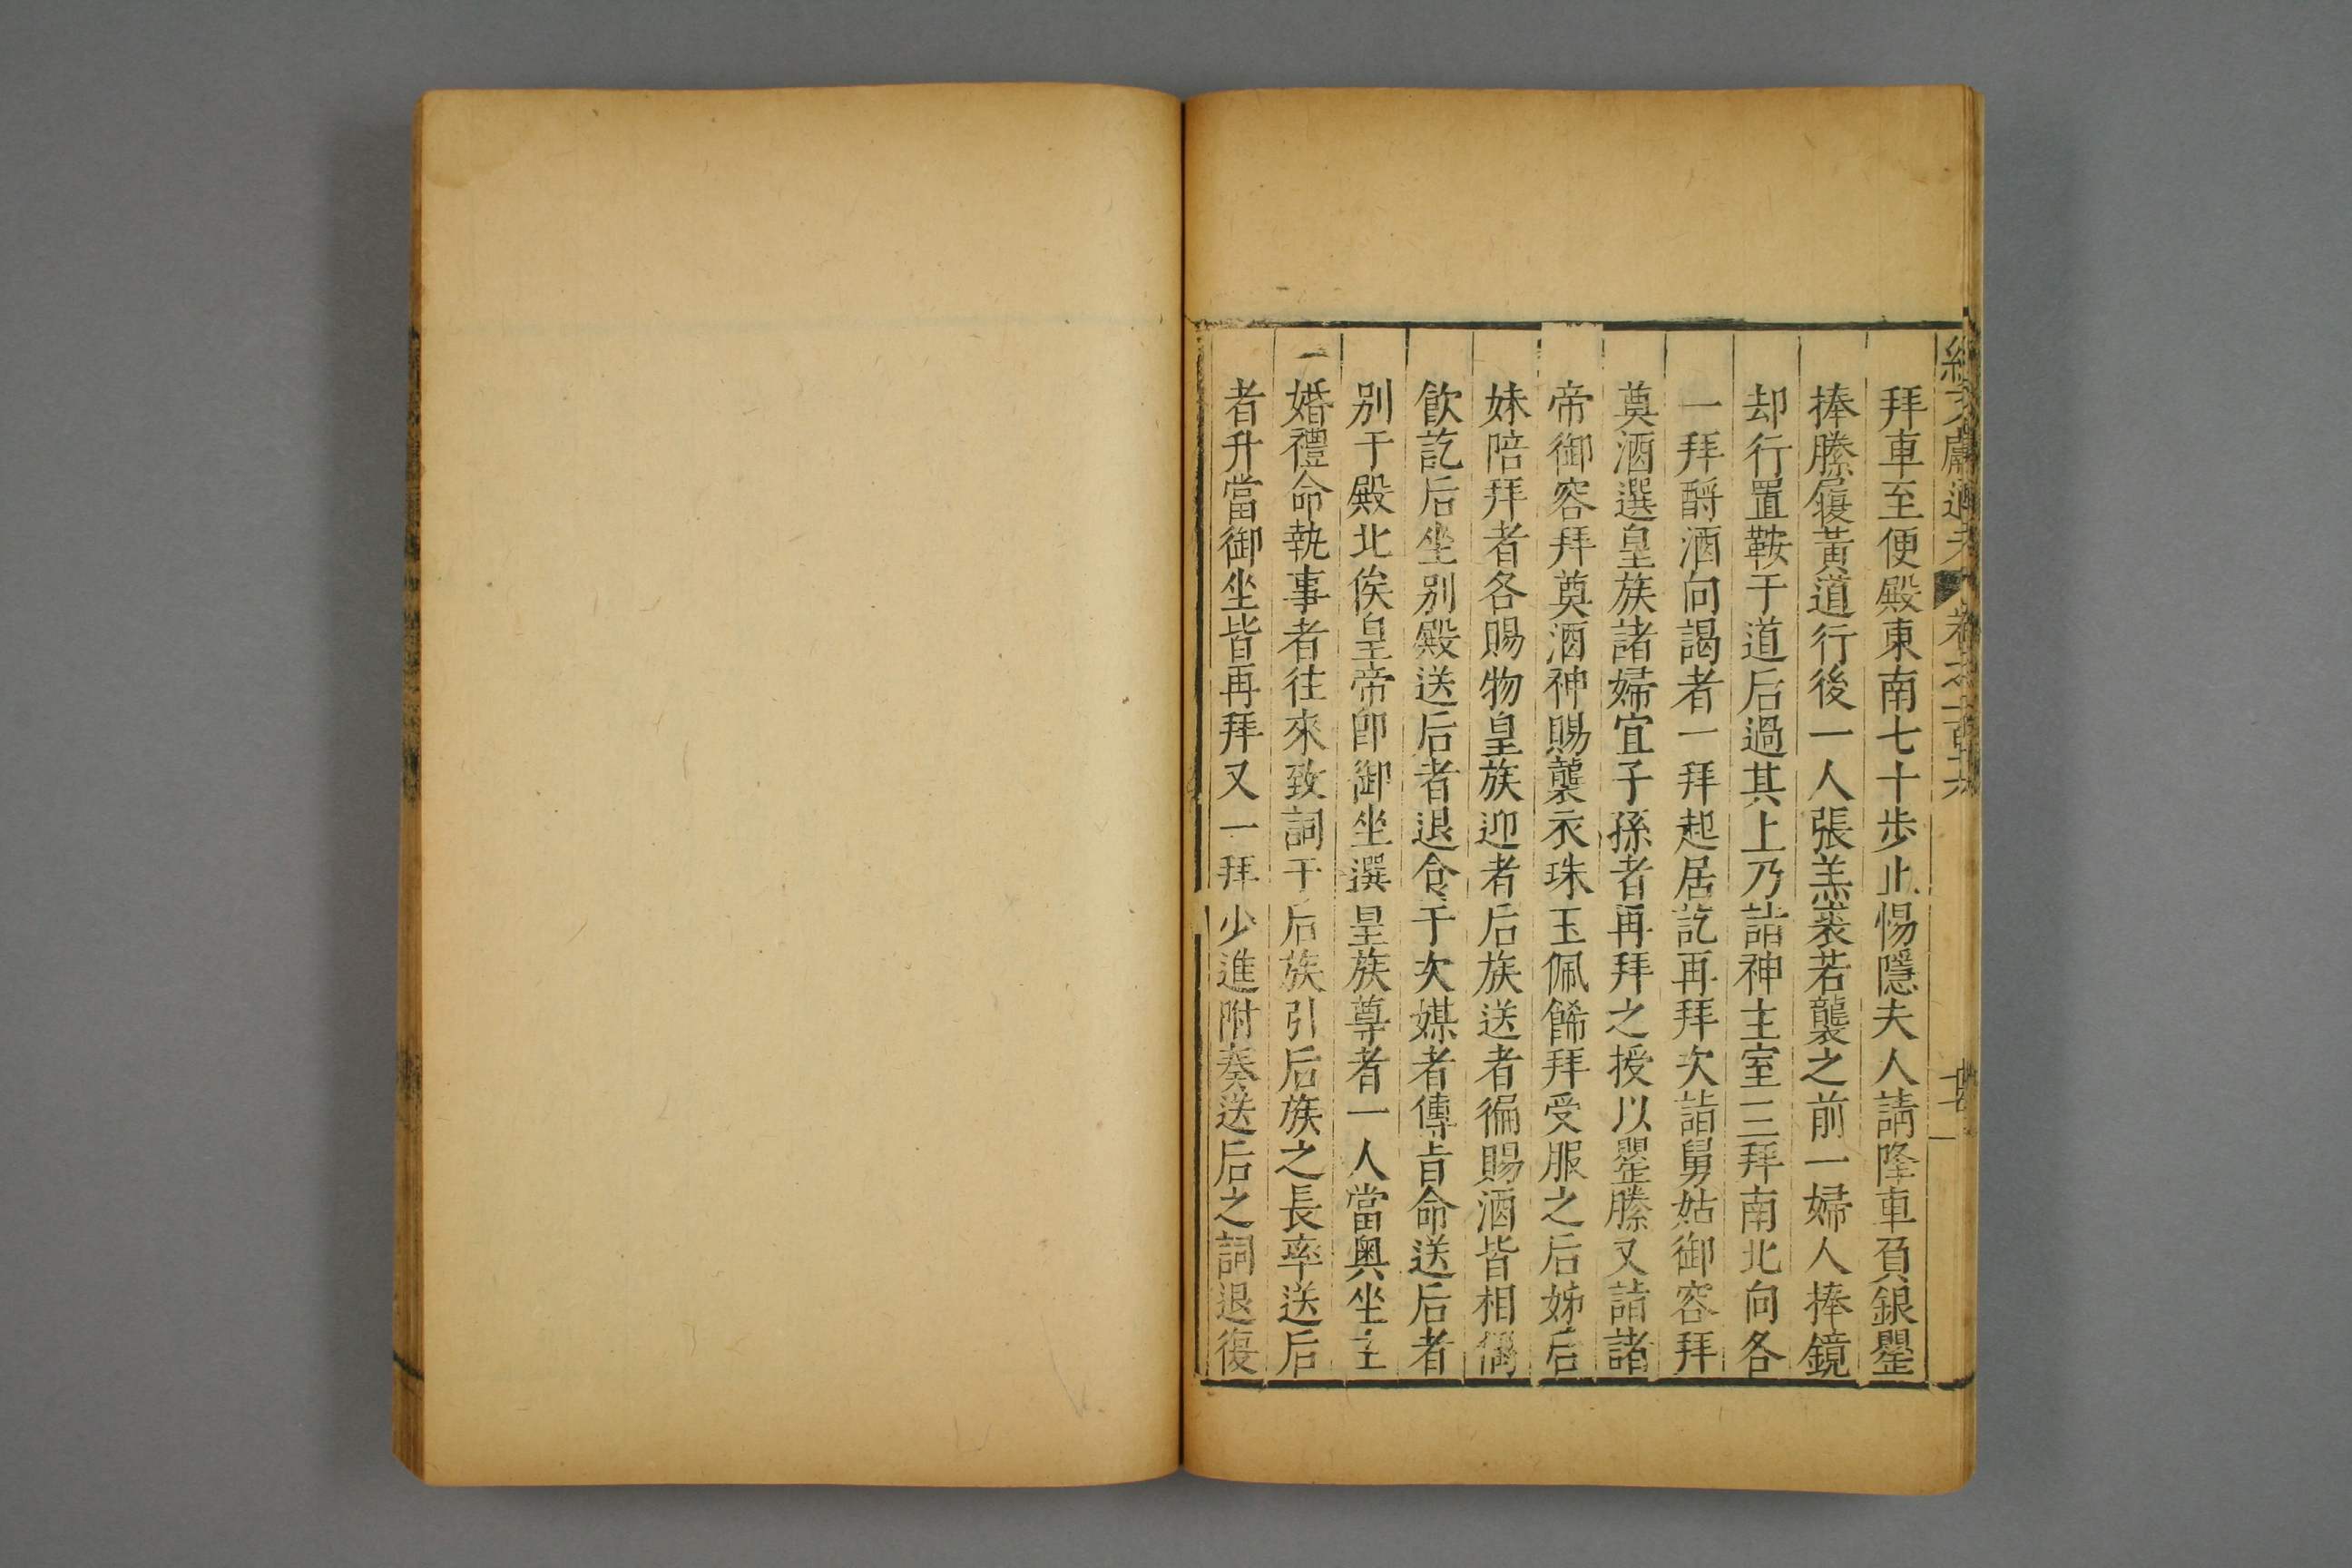 拜車至便殿東南七十步止惕隱夫人請降車負銀罌
捧縢履黃道行後一人張羔裘若襲之前一婦人捧鏡
却行置鞍于道后過其上乃詣神主室三拜南北向各
一拜酹酒向謁者一拜起居訖再拜次詣舅姑御容拜
奠酒選皇族諸婦宜子孫者再拜之授以罌縢又詣諸
帝御容拜奠酒神賜襲衣珠玉佩餙拜受服之后姊后
妹陪拜者各賜物皇族迎者后族送者徧賜酒皆相偶
飲訖后坐别殿送后者退食于次媒者傳旨命送后者
别于殿北俟皇帝卽御坐選皇族尊者一人當奧坐主
婚禮命執事者往來致詞于后族引后族之長率送后
者升當御坐皆再拜又一拜少進附奏送后之詞退復